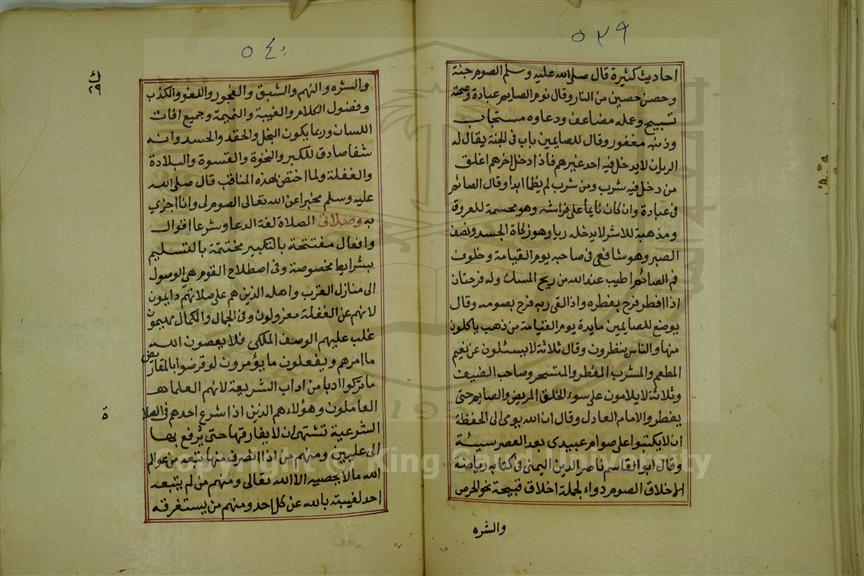 ٥٣٩
احاديث كثيرة قال صلى الله عليه وسلم الصوم جنة
وحصن حصين من النار وقال نوم الصايم عبادة وصمته
تسبيح وعمله مضاعف ودعاوه مستجاب
وذنبه مغفور وقال للصايمين باب في الجنة يقال له
الريان لا يدخل فيه احد غيرهم فاذا دخل اخرهم اغلق
من دخل فيه شرب ومن شرب لم يظما ابدا وقال الصائم
في عبادة وان كان نائما على فراشه وهو محسمة للعروق
ومذهبة للاشر لا يدخله ريا وهو زكاة الجسد ونصف
الصبر وهو شافع في صاحبه يوم القيامة وخلوف
فم الصائم اطيب عند الله من ريح المسك وله فرحتان
اذا افطر فرح بفطره واذا لقى ربه فرح بصومه وقال
يوضع للصايمين مايدة يوم القيامة من ذهب ياكلون
منها والناس ينظرون وقال ثلاثة لا يسئلون عن نعيم
المطعم والمشرب المفطر والمتسحر وصاحب الضيف
وثلاثة لا يلامون على سوء الخلق المريض والصايم حتى
يفطر والامام العادل وقال ان الله يوحى الى الحفظة
ان لا يكتبوا على صوام عبيدى بعد العصر سيئة
وقال ابو القاسم ناصر الدين اليمنى في كتابه رياضة
الاخلاق الصوم دواء لجملة اخلاق قبيحة نحو الحرص
والشره
٥٤٠
والشره والنهم والشبق والفجور واللغو والكذب
وفضول الكلام والغيبة والنميمة وجميع افات
اللسان وربما يكون البخل والحقد والحسد وانه
شفا صادق للكبر والنخوة والقسوة والبلادة
والغفلة ولما اختص بهذه المناقب قال صلى الله
عليه وسلم مخبرا عن الله تعالى الصوم لى وانا اجزي
به وصلاتى الصلاة لغة الدعا وشرعا اقوال
وافعال مفتتحة بالتكبير مختتمة بالتسليم
بشرايط مخصوصة وفى اصطلاح القوم هى الوصول
الى منازل القرب واهله الذين هم على صلاتهم دايمون
لانهم عن الغفلة معزولون وفى الجمال والكمال مهيمون
غلب عليهم الوصف الملكى فلا يعصون الله
ما امرهم ويفعلون ما يؤمرون لو قرضوا بالمقاريض
ما تركوا ادبا من اداب الشريعة لانهم العلماء
العاملون وهؤلاء هم الذين اذا شرع احدهم فى الصلاة
الشرعية تشتهى ان لا يفارقها حتى يرفع بها
الى عليين ومنهم من اذا انصرف منها تبعه من عوالم
الله ما لا يحصيه الا الله تعالى ومنهم من لم يتبعه
احد لغيبته بالله عن كل احد ومنهم من يستغرقه
Copyright © King Saud University